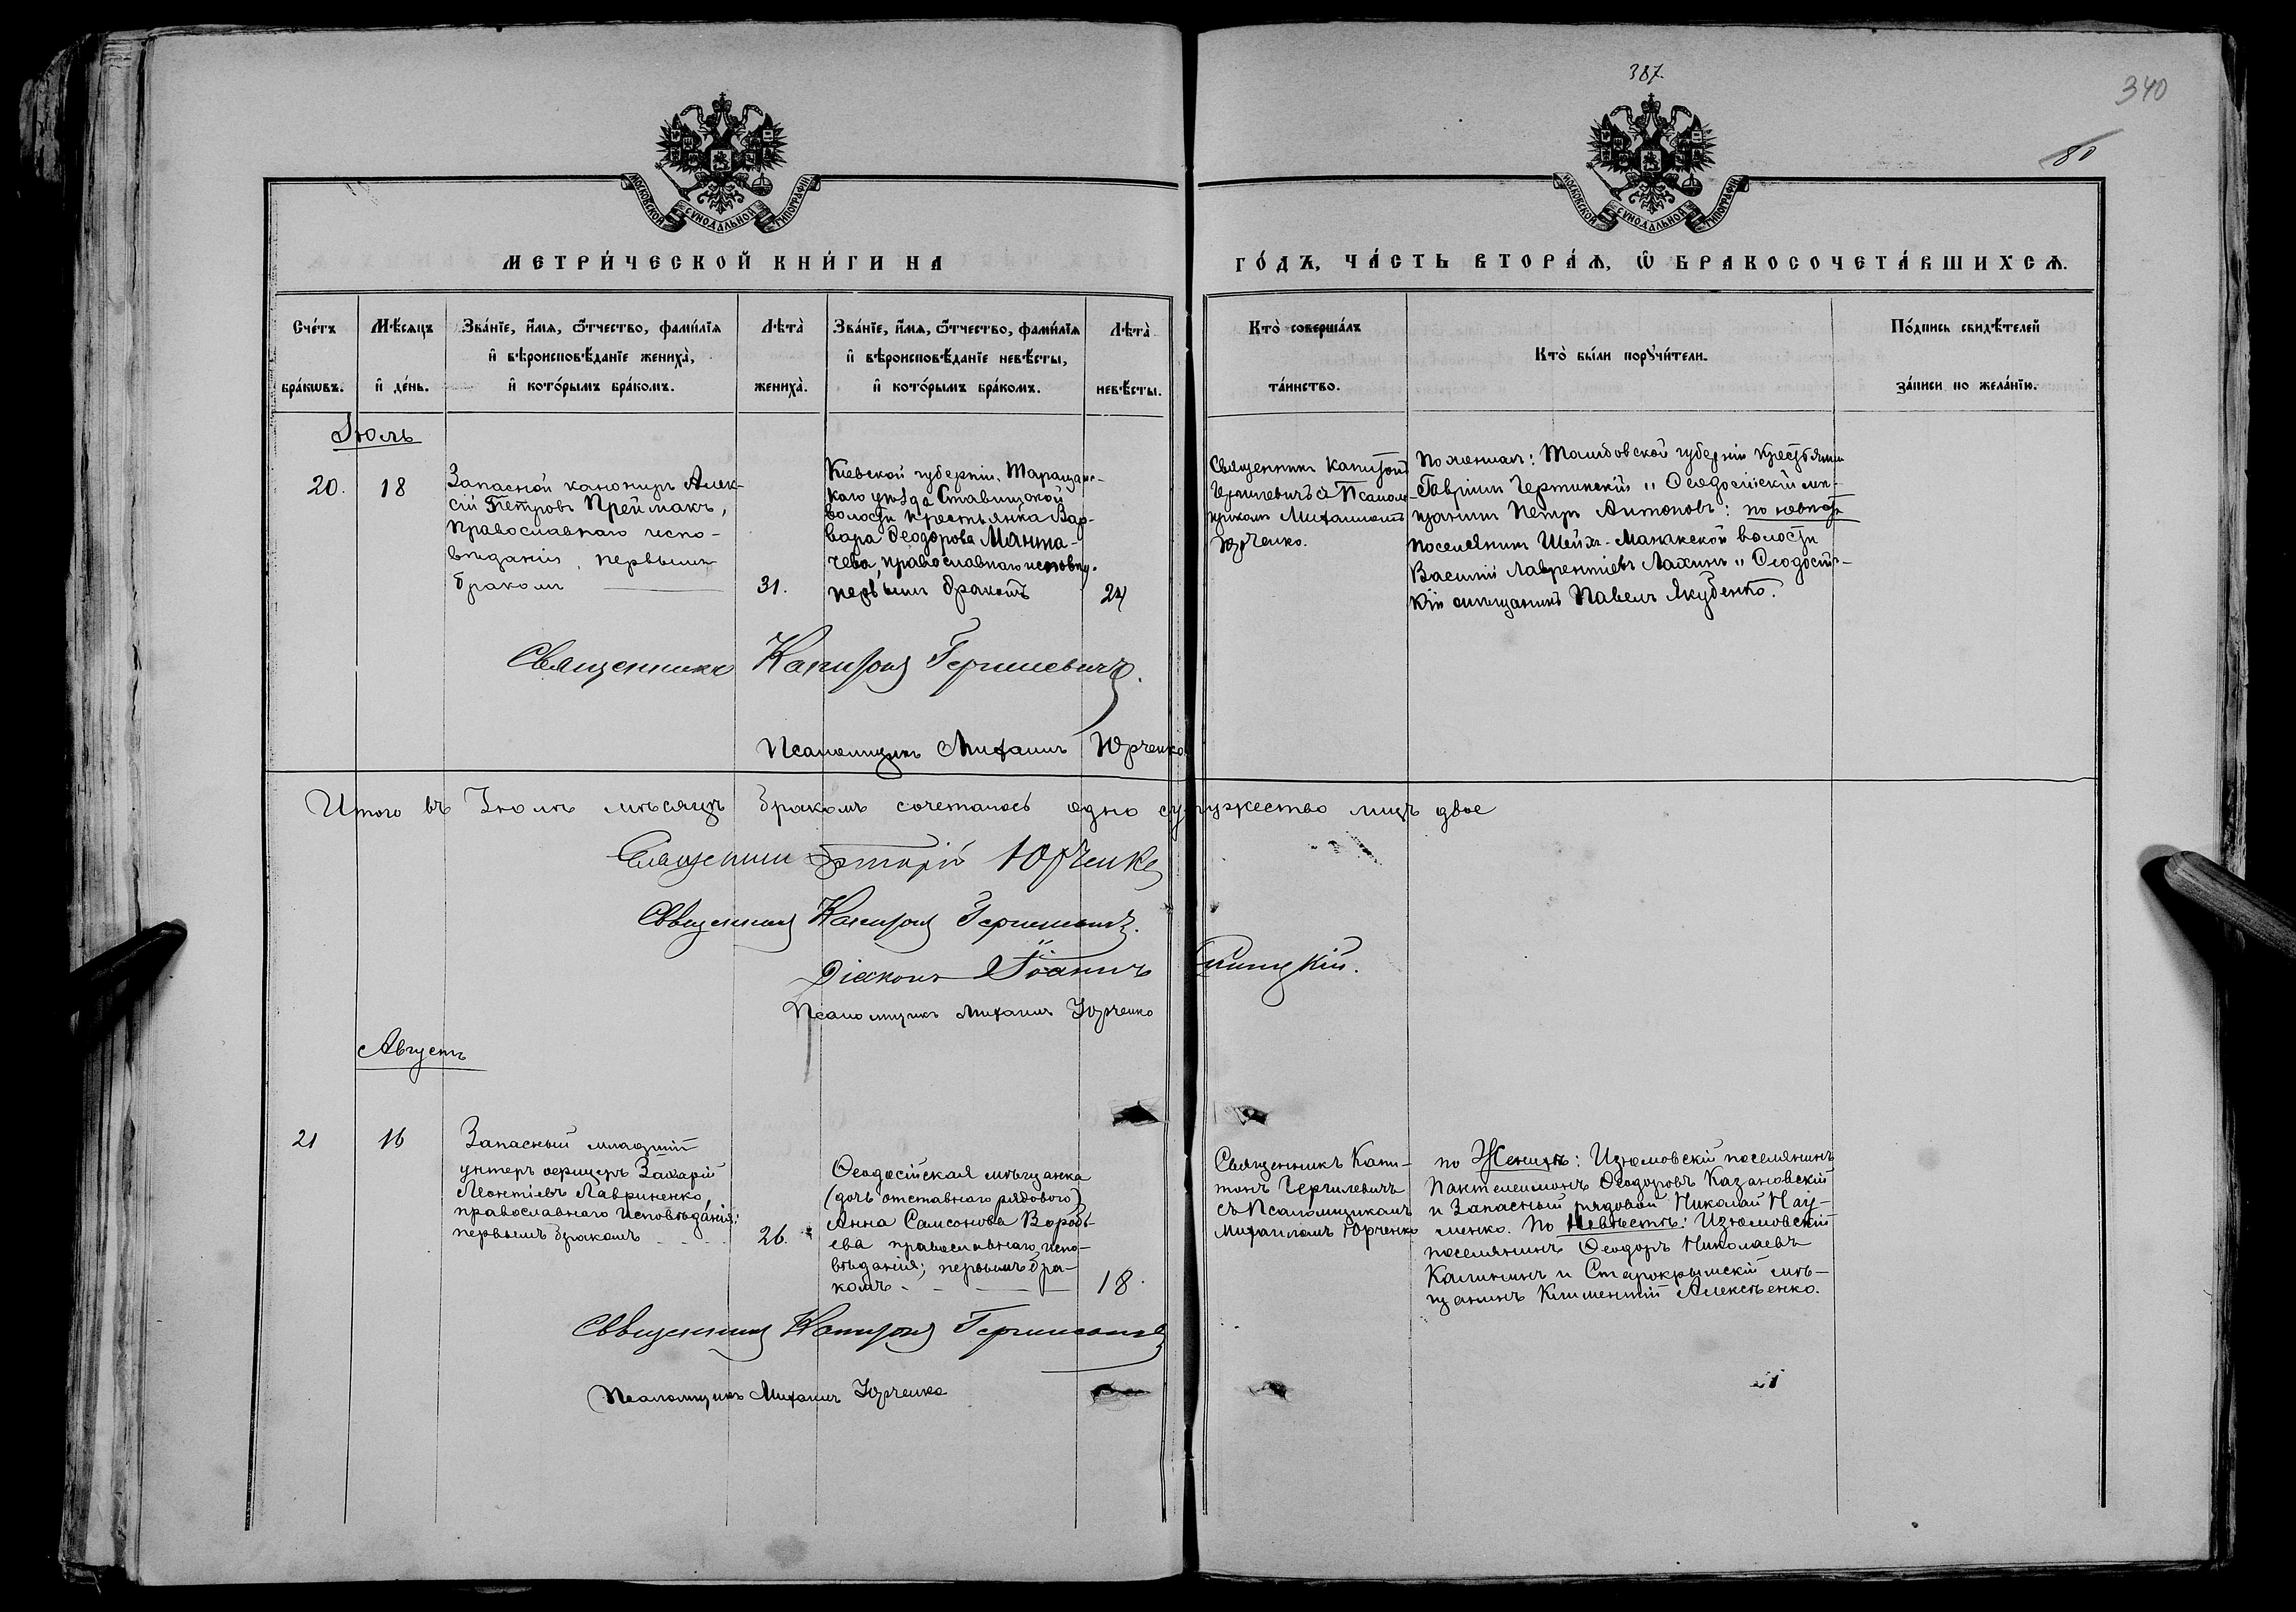 387.
340
80
МОСКОВСКОЙ СѴНОДАЛЬНОЙ ТИПОГРАФІИ
МОСКОВСКОЙ СѴНОДАЛЬНОЙ ТИПОГРАФІИ
МЕТРИ́ЧЕСКОЙ КНИ́ГИ НА
ГО́ДЪ, ЧА́СТЬ ВТОРА́Ѧ, Ѡ҆ БРАКОСОЧЕТА́ВШИХСѦ.
Сче́тъ бра́кѡвъ.
Мѣ́сѧцъ и҆ де́нь.
Зва́нїе, и҆́мѧ, ѻ҆́тчество, фамилїѧ
и҆ вѣроисповѣ́данїе жениха̀,
и҆ кото́рымъ бра́комъ.
Лѣ́та̀ жениха̀.
Зва́нїе, и҆́мѧ, ѻ҆́тчество, фами́лїѧ
и҆ вѣроисповѣ́данїе невѣ́сты,
и҆ кото́рымъ бра́комъ.
Лѣ́та̀ невѣ́сты.
Кто̀ соверша́лъ
та́инство.
Кто̀ бы́ли порꙋчи́тели.
По́дпись свидѣ́телей
за́писи по жела́нїю.
Іюль
20.
18
Запасной канониръ Алек-
сій Петровъ Преймакъ,
православнаго испо-
вѣданія, первымъ
бракомъ
31.
Кіевской губерніи, Таращан-
скаго уѣзда Ставищской
волости крестьянка Вар-
вара Ѳеодорова Манта-
чева, православнаго исповѣд.
первымъ бракомъ
24
Священникъ Капитонъ
Гергилевичъ съ Псалом-
щикомъ Михаиломъ
Юрченко.
По женихѣ: Тамбовской губерніи крестьянинъ
Гавріилъ Чертинскій и Ѳеодосійскій мѣ-
щанинъ Петръ Антоновъ: по невѣстѣ
поселянинъ Шейхъ-Манакской волости
Василій Лаврентіевъ Лахинъ и Ѳеодосій-
скій мѣщанинъ Павелъ Якубенко.
Священникъ Капитонъ Гергилевичъ.
Псаломщикъ Михаилъ Юрченко
Итого въ Іюлѣ мѣсяцѣ бракомъ сочеталось одно супружество лицъ двое
Священникъ Юрченко
Священникъ Капитонъ Гергилевичъ.
Діаконъ Іоаннъ
Псаломщикъ Михаилъ Юрченко
Августъ
21
16
Запасный младшій
унтеръ офицеръ Захарій
Леонтіевъ Лавриненко,
православнаго исповѣданія;
первымъ бракомъ
26.
Ѳеодосійская мѣщанка
(дочь отставнаго рядового)
Анна Самсонова Воробь-
ева православнаго испо-
вѣданія; первымъ бра-
комъ
18.
Священникъ Капи-
тонъ Гергилевичъ
съ Псаломщикомъ
Михаиломъ Юрченко
по Женихѣ: Изюмовскій поселянинъ
Пантелеимонъ Ѳеодоровъ Казановскій
и Запасный рядовой Николай Нау-
менко. По Невѣстѣ: Изюмовскій
поселянинъ Ѳеодоръ Николаевъ
Калининъ и Старокрымскій мѣ-
щанинъ Климентій Алексѣенко.
Священникъ Капитонъ Гергилевичъ
Псаломщикъ Михаилъ Юрченко